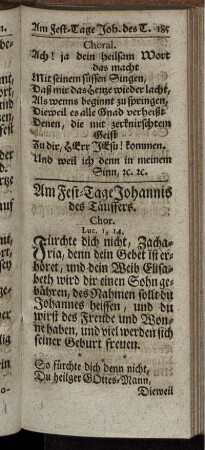 Am Fest-Tage Joh. des T. 185
Choral.
Ach! ja dein heilsam Wort
das macht
Mit seinem süssen Singen,
Daß mir das Hertze wieder lacht,
Als wenns beginnt zu springen,
Dieweil es alle Gnad verheißt
Denen, die mit zerknirschtem
Geist
Zu dir, HErr JEsu! kommen.
Und weil ich denn in meinem
Sinn, ꝛc. ꝛc.
Am Fest-Tage Johannis
des Täuffers.
Chor.
Luc. 1, 14.
Fürchte dich nicht, Zacha-
ria, denn dein Gebet ist er-
höret, und dein Weib Elisa-
beth wird dir einen Sohn ge-
bähren, des Nahmen solt du
Johannes heissen, und du
wirst des Freude und Won-
ne haben, und viel werden sich
seiner Geburt freuen.
So fürchte dich denn nicht,
Du heilger GOttes-Mann,
Dieweil